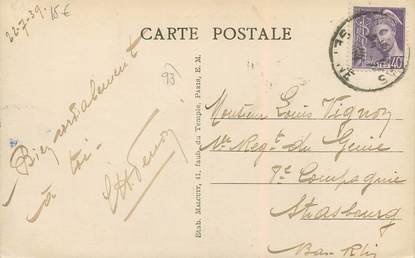 22-7-39. 15€
CARTE POSTALE
93
40
Bien cordialement
à toi
Etab. MALCUIT, 41, faub. du Temple, PARIS, E. M.
Monsieur Louis Vignon
Regt. du Genie
7e Compagnie
Strasbourg
Bas-Rhin